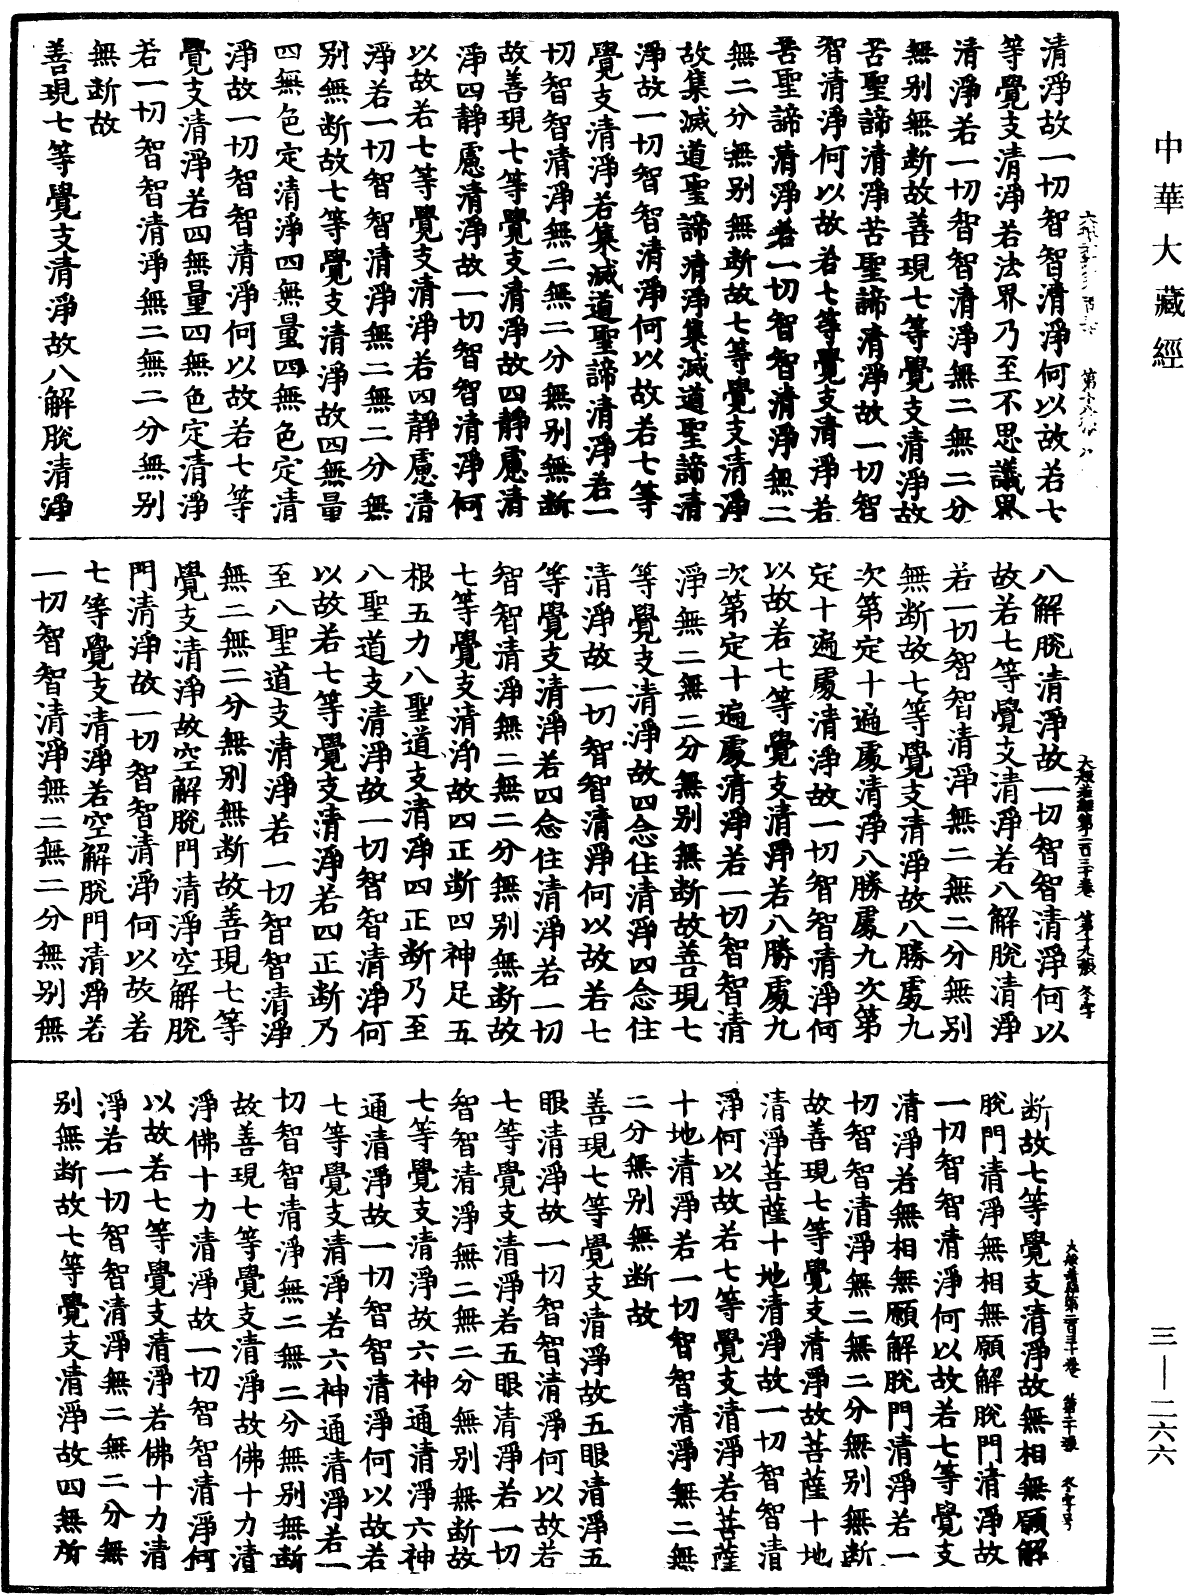 中華大藏經
清淨故一切智智清淨何以故若七
等覺支清淨若法界乃至不思議界
清淨若一切智智清淨無二無二分
無別無斷故善現七等覺支清淨故
苦聖諦清淨苦聖諦清淨故一切智
智清淨何以故若七等覺支清淨若
苦聖諦清淨若一切智智清淨無二
無二分無別無斷故七等覺支清淨
故集滅道聖諦清淨集滅道聖諦清
淨故一切智智清淨何以故若七等
覺支清淨若集滅道聖諦清淨若一
切智智清淨無二無二分無別無斷
故善現七等覺支清淨故四靜慮清
淨四靜慮清淨故一切智智清淨何
以故若七等覺支清淨若四靜慮清
淨若一切智智清淨無二無二分無
別無斷故七等覺支清淨故四無量
四無色定清淨四無量四無色定清
淨故一切智智清淨何以故若七等
覺支清淨若四無量四無色定清淨
若一切智智清淨無二無二分無別
無斷故
善現七等覺支清淨故八解脫清淨
八解脫清淨故一切智智清淨何以
故若七等覺支清淨若八解脫清淨
若一切智智清淨無二無二分無別
無斷故七等覺支清淨故八勝處九
次第定十遍處清淨八勝處九次第
定十遍處清淨故一切智智清淨何
以故若七等覺支清淨若八勝處九
次第定十遍處清淨若一切智智清
淨無二無二分無別無斷故善現七
等覺支清淨故四念住清淨四念住
清淨故一切智智清淨何以故若七
等覺支清淨若四念住清淨若一切
智智清淨無二無二分無別無斷故
七等覺支清淨故四正斷四神足五
根五力八聖道支清淨四正斷乃至
八聖道支清淨故一切智智清淨何
以故若七等覺支清淨若四正斷乃
至八聖道支清淨若一切智智清淨
無二無二分無別無斷故善現七等
覺支清淨故空解脫門清淨空解脫
門清淨故一切智智清淨何以故若
七等覺支清淨若空解脫門清淨若
一切智智清淨無二無二分無別無
大般若經第二百三十卷 第十九張 冬字
斷故七等覺支清淨故無相無願解
脫門清淨無相無願解脫門清淨故
一切智智清淨何以故若七等覺支
清淨若無相無願解脫門清淨若一
切智智清淨無二無二分無別無斷
故善現七等覺支清淨故菩薩十地
清淨菩薩十地清淨故一切智智清
淨何以故若七等覺支清淨若菩薩
十地清淨若一切智智清淨無二無
二分無別無斷故
善現七等覺支清淨故五眼清淨五
眼清淨故一切智智清淨何以故若
七等覺支清淨若五眼清淨若一切
智智清淨無二無二分無別無斷故
七等覺支清淨故六神通清淨六神
通清淨故一切智智清淨何以故若
七等覺支清淨若六神通清淨若一
切智智清淨無二無二分無別無斷
故善現七等覺支清淨故佛十力清
淨佛十力清淨故一切智智清淨何
以故若七等覺支清淨若佛十力清
淨若一切智智清淨無二無二分無
別無斷故七等覺支清淨故四無所
大般若經第二百三十卷 第二十張 冬字号
三—二六六